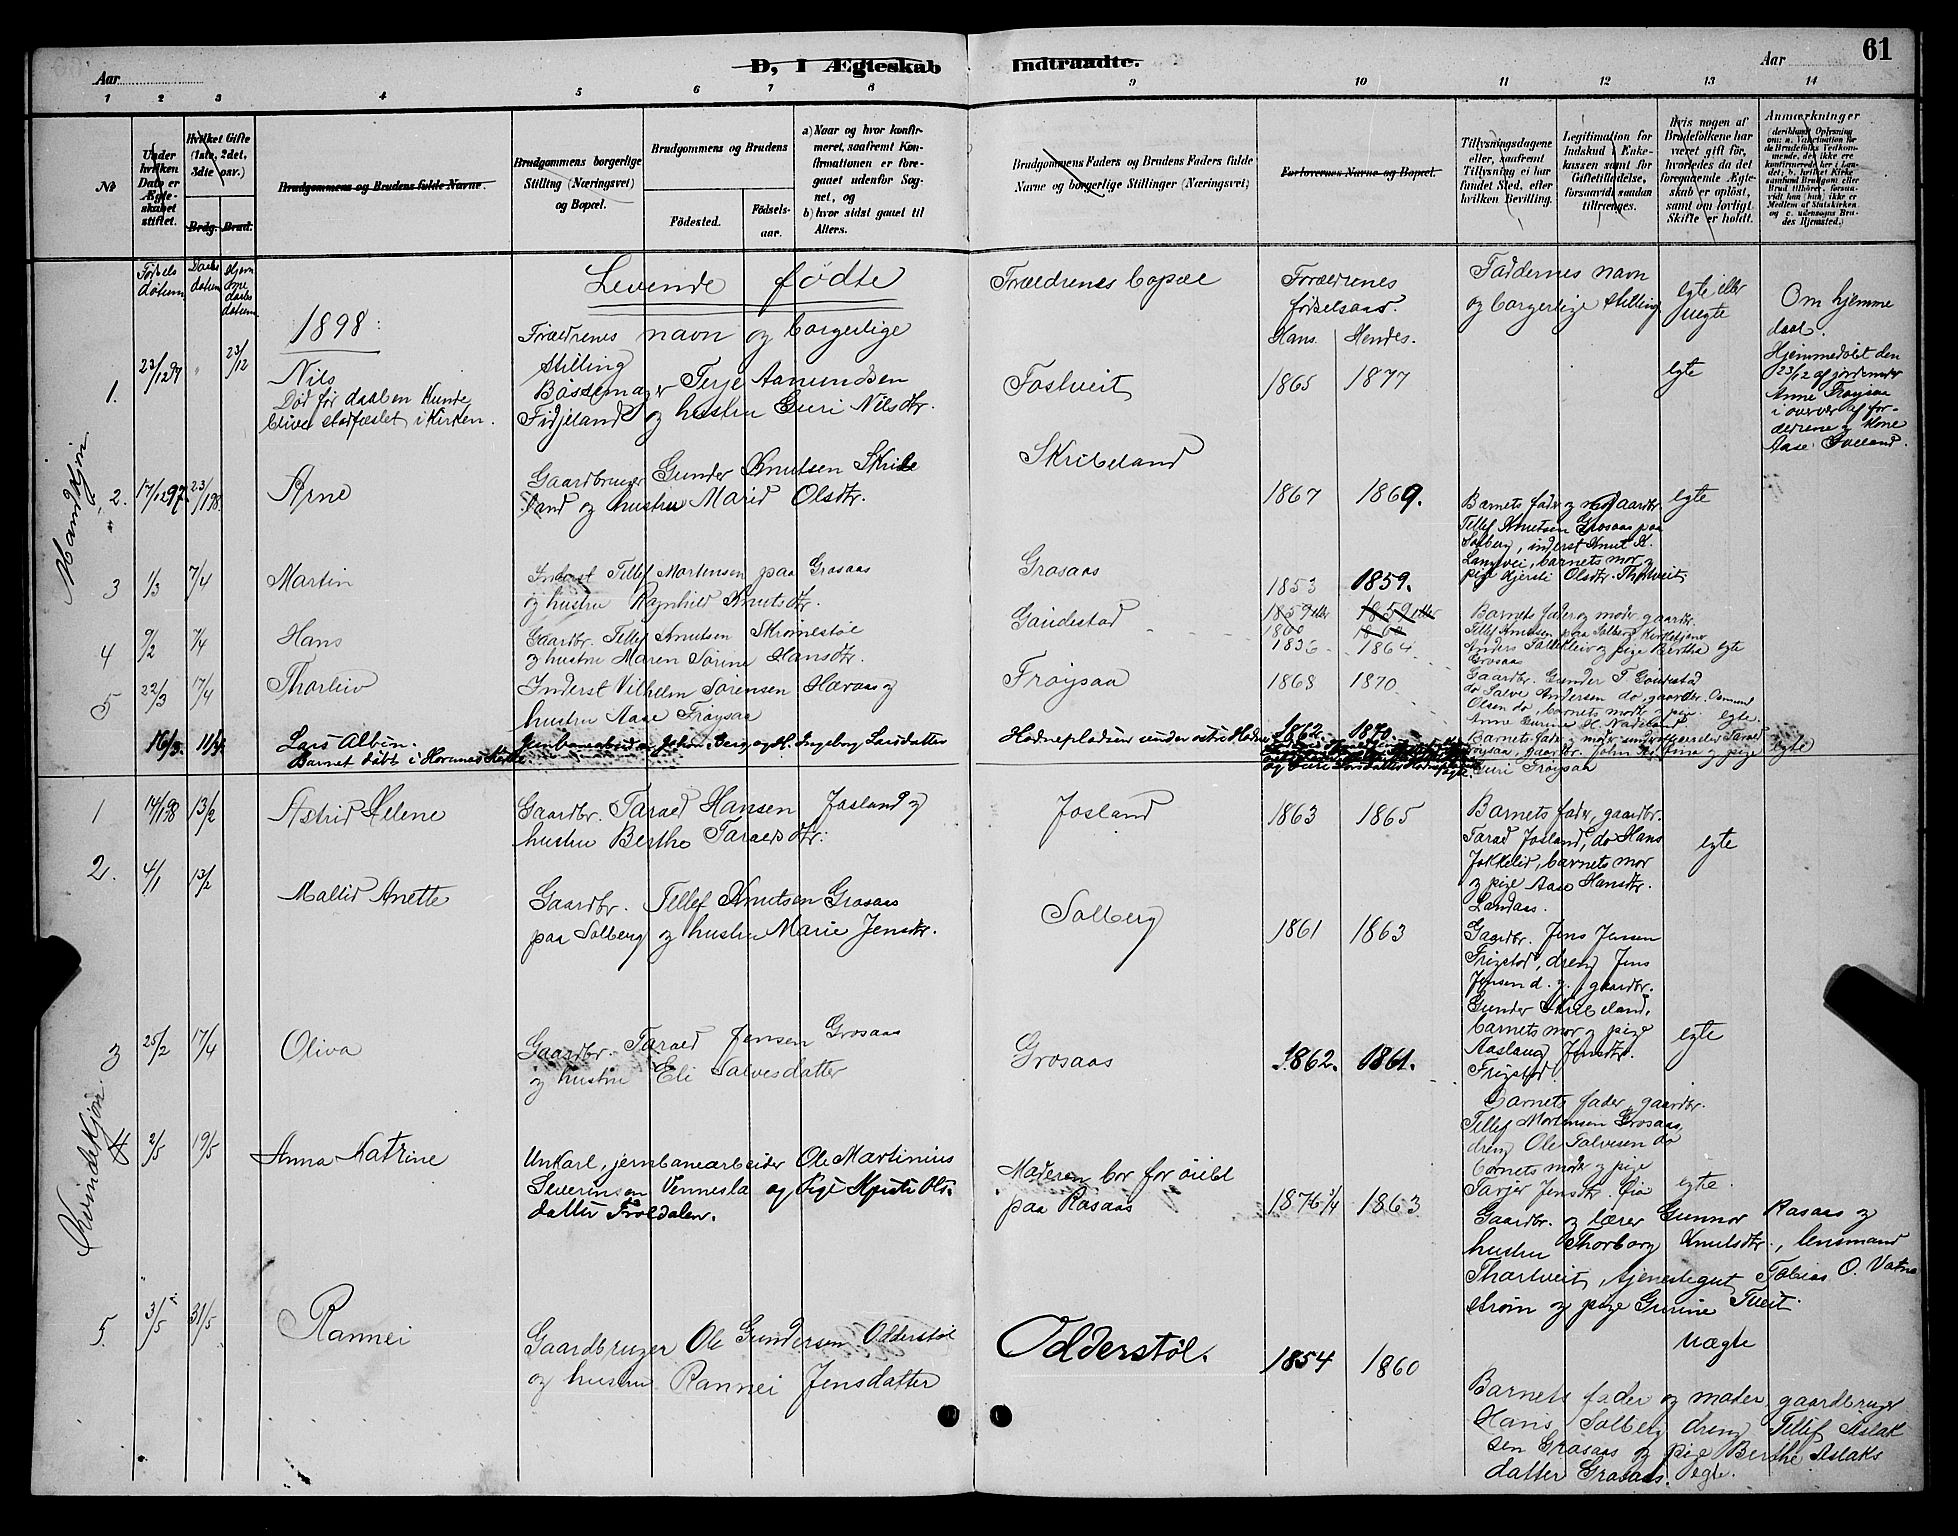 61
Aar
D, I Ægteskab Indtraadte.
Aar
1 2 3 4 5 6 7 8 9 10 11 12 13 14
No
Under hvilken Dato er Ægteskabet stiftet.
Hvilket Gifte (1ste, 2det, 3die osv.)
Brdg. Brud.
Brudgommens og Brudens fulde Navne.
Brudgommens borgerlige Stilling (Næringsvei) og Bopæl.
Brudgommens og Brudens
Fødested.
Fødselsaar.
a) Naar og hvor konfirmeret, saafremt Konfirmationen er foregaaet udenfor Sognet, og
b) hvor sidst gaaet til Alters.
Brudgommens Faders og Brudens Faders fulde Navne og borgerlige Stillinger (Næringsvei)
Forlovernes Navne og Bopæl.
Tillysningsdagene eller, saafremt Tillysning ei har fundet Sted, efter hvilken Bevilling.
Legitimation for Indskud i Enkekassen samt for Giftetilladelse, forsaavidt saadan tiltrænges.
Hvis nogen af Brudefolkene har været gift før, hvorledes da det foregaaende Ægteskab er opløst, samt om lovligt Skifte er holdt.
Anmærkninger
Fødsels datum
Daabs datum
Hjemme daabs datum
Levende fødte
1898:
Forældrenes navn og borgerlige stilling
Forældrenes bopæl
Forældrenes fødselsaar.
Hans. Hendes.
Faddernes navn og borgerlige stilling
egte eller uegte
Om hjemme daab.
Mandkjøn
1. 22/12 97 " 23/12
Nils
Død før daaben kunde blive stadfæstet i kirken.
Bøssemager Terje Aamundsen
Fidjeland og hustru Guri Nilsdtr.
Fostveit
1865 1877
egte
Hjemmedøbt den 23/12 af jordemoder Anne Frøysaa i overvær af forældrene og kone Aase Sveland.
2. 17/12 97. 23/1 98.
Arne
Gaardbruger Gunder Knutsen Skribe
land og hustru Marid Olsdtr.
Skribeland
1867 1869.
Barnets fader og mor, gaardbr.
Tellef Knutsen Grosaas paa
Solberg, inderst Knut K.
barnets mor og
pige Kjersti Olsdtr. Thortveit
egte
3 1/3 7/4
Martin
Inderst Tellef Mortensen paa Grosaas
og hustru Ragnhild Knutsdtr.
Grosaas
1853 1859.
4 9/2 7/4
Hans
Gaardbr. Tellef Knutsen Skromestøl
og hustru Maren Sørine Hansdtr.
Gaudestad
1859 eller 1859 eller
1860 1860
1836 1864
Barnets fader og moder, gaardbr.
Tellef Knutsen paa Solberg, kirketjener
Anders og pige Bertha
Grosaas
egte
5 22/3 17/4
Thorleiv
Inderst Vilhelm Sørensen Haraas og
hustru Aase Frøysaa
Frøysaa
1868 1870
Gaardbr. Gunder T. Gaudestad
do Salve Andersen do, gaardbr. Osmund
Olsen do, barnets moder og pige
Anne Gurine H. Nadeland
egte.
16/3. 11/4.
Lars Albin.
Barnet døbt i Hornnes Kirke
Jernbanearbeider Johan Ingeborg Larsdatter
Hodnepladsen under østre Hodne
1862. 1870.
Barnets fader og moder, underofficerselev Tarald
Frøysaa, gaardbr. John og pige
Guri Frøysaa
egte
Kvindekjøn
1 14/1 98 13/2
Astrid Helene
Gaardbr. Tarald Hansen Josland og
hustru Berthe Taraldsdtr.
Josland
1863 1865
Barnets fader, gaardbr.
Tarald Josland, do Hans
Jokkelid, barnets mor
og pige Aase Hansdtr.
Landaas.
egte
2. 4/1 13/2
Mallid Anette
Gaardbr. Tellef Knutsen Grosaas
paa Solberg og hustru Marie Jensdtr.
Solberg
1861 1863
Gaardbr. Jens Jensen
Frigstad, dreng Jens
Jensen d. y., gaardbr.
Gunder Skribeland,
barnets mor og pige
Aaslaug Jensdtr.
Frigstad
egte
3 25/2 17/4
Oliva
Gaardbr. Tarald Jensen Grosaas
og hustru Eli Salvesdatter
Grosaas
1862. 1861.
Barnets fader, gaardbr.
Tellef Mortensen Grosaas,
dreng Ole Salvesen do
barnets moder og pige
Tarjer Jensdtr. Øia
egte.
4 2/5 19/5
Anna Katrine
Unkarl, jernbanearbeider Ole Martinius
Severinsen Vennesla og Pige Kjersti Ols-
datter Troldalen.
Moderen bor for øieblik
paa Rosaas
1876 1/4 1863
Gaardbr. og lærer Gunnar Rosaas og
hustru Thorborg Knutsdtr., lensmand
Thortveit, tjenestegut Tobias O. Vatne
strøm og pige Gurine Tveit.
uægte
5. 3/5 31/5
Rannei
Gaardbruger Ole Gundersen Odderstøl
og hustru Rannei Jensdatter
Odderstøl.
1854 1860
Barnets fader og moder, gaardbruger
Hans Solberg, dreng Tellef Aslak
sen Grosaas og pige Berthe Aslaks
datter Grosaas. egte.